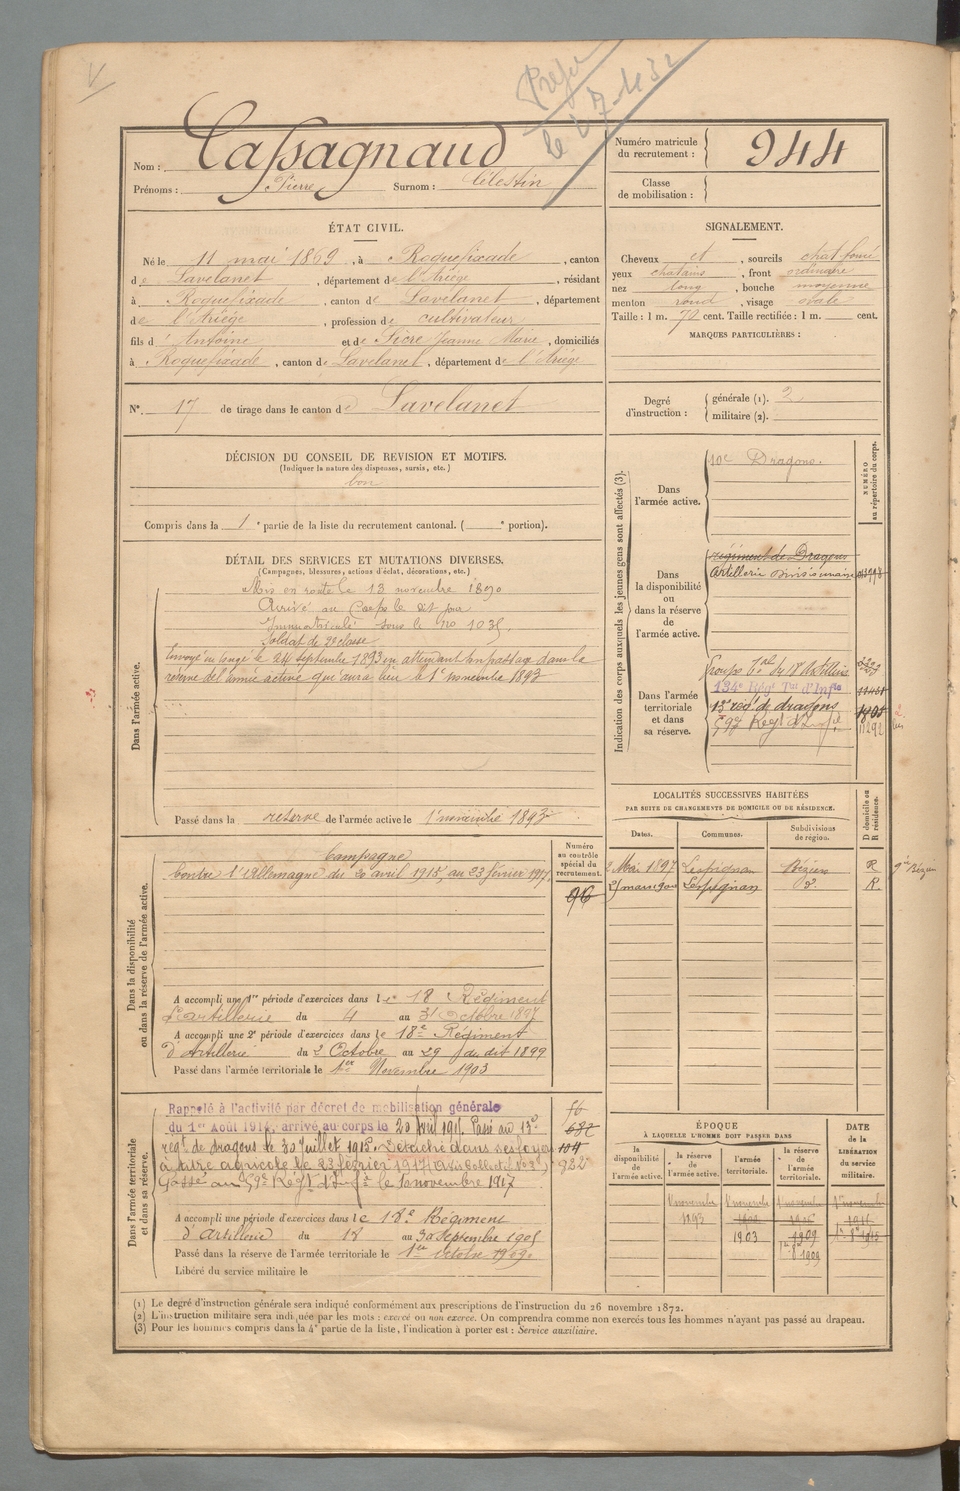 V
Nom : Cassagnaud
Prénoms : Pierre Surnom : Célestin
Numéro matricule du recrutement : 944
Classe de mobilisation :
ÉTAT CIVIL.
Né le 11 mai 1869, à Roquefixade, canton
de Lavelanet, département de l'Ariège, résidant
à Roquefixade, canton de Lavelanet, département
de l'Ariège, profession de cultivateur
fils d'Antoine et de Sicre Jeanne Marie, domiciliés
à Roquefixade, canton de Lavelanet, département de l'Ariège
N° 17 de tirage dans le canton de Lavelanet
SIGNALEMENT.
Cheveux et, sourcils chat foncé
yeux chatains, front ordinaire
nez long, bouche moyenne
menton rond, visage ovale
Taille : 1 m. 72 cent. Taille rectifiée : 1 m. cent.
MARQUES PARTICULIÈRES :
Degré d'instruction : générale (1). 2
militaire (2).
DÉCISION DU CONSEIL DE REVISION ET MOTIFS.
(Indiquer la nature des dispenses, sursis, etc.)
bon
Compris dans la 1e partie de la liste du recrutement cantonal. ( e portion).
DÉTAIL DES SERVICES ET MUTATIONS DIVERSES.
(Campagnes, blessures, actions d'éclat, décorations, etc.)
Dans l'armée active.
Mis en route le 13 novembre 1890
Arrivé au Corps le dit jour
Immatriculé sous le no 1035.
Soldat de 2e classe
Envoyé en congé le 24 septembre 1893 en attendant son passage dans la
réserve de l'armée active qui aura lieu le 1er novembre 1893
Passé dans la réserve de l'armée active le 1er novembre 1893
Indication des corps auxquels les jeunes gens sont affectés (3).
NUMÉRO au répertoire du corps.
Dans l'armée active.
10e Dragons.
Dans la disponibilité ou dans la réserve de l'armée active.
régiment de Dragons
Artillerie divisionnaire
Dans l'armée territoriale et dans sa réserve.
Groupe du 18 d'artillerie
134e Régt Tal d'Infie
11451
13e régt de dragons 1805
59e Regt d'Inf. 11292
LOCALITÉS SUCCESSIVES HABITÉES
PAR SUITE DE CHANGEMENTS DE DOMICILE OU DE RÉSIDENCE.
Dates. Communes. Subdivisions de région. D domicile ou R résidence.
2 Mai 1897 Lespignan Béziers R
21 mars 1900 Lespignan d°. R.
Dans la disponibilité ou dans la réserve de l'armée active.
Numéro au contrôle spécial du recrutement.
96
Campagne
Contre l'Allemagne du 20 avril 1915, au 23 février 1917.
A accompli une 1re période d'exercices dans le 18 Régiment
d'artillerie du 4 au 31 Octobre 1897
A accompli une 2e période d'exercices dans le 18e Régiment
d'Artillerie du 2 Octobre au 29 du dit 1899
Passé dans l'armée territoriale le 1er Novembre 1903
Dans l'armée territoriale et dans sa réserve.
Rappelé à l'activité par décret de mobilisation générale
du 1er Août 1914, arrivé au corps le 20 Avril 1915. Passé au 13e
régt de dragons le 30 Juillet 1915. Détaché dans ses foyers
à titre agricole le 23 février 1917
Passé au 59e Régt d'Infie le 10 novembre 1917
687
104
922
A accompli une période d'exercices dans le 18e Régiment
d'Artillerie du 18 au 30 septembre 1905
Passé dans la réserve de l'armée territoriale le 1er octobre 1909
Libéré du service militaire le
ÉPOQUE
À LAQUELLE L'HOMME DOIT PASSER DANS
la disponibilité de l'armée active. la réserve de l'armée active. l'armée territoriale. la réserve de l'armée territoriale. DATE de la LIBÉRATION du service militaire.
1er novembre 1er novembre 1er novembre 1er novembre
1893
1903 1909
1909
(1) Le degré d'instruction générale sera indiqué conformément aux prescriptions de l'instruction du 26 novembre 1872.
(2) L'instruction militaire sera indiquée par les mots : exercé ou non exercé. On comprendra comme non exercés tous les hommes n'ayant pas passé au drapeau.
(3) Pour les hommes compris dans la 4e partie de la liste, l'indication à porter est : Service auxiliaire.